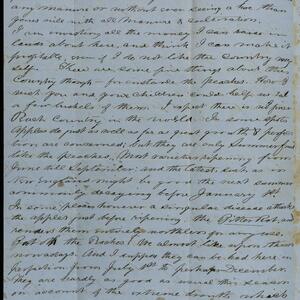 any manure or without even seeing a hoe than
yours will with all Manure & culteration.
I am investing all the money I can raise in
Lands about here, and think I can make it
profitable, even if I do not like the Country very
well. There are some fine things about this
Country though — for instance the peaches. How I
wish you and your children could help us eat
a few bushels of them. I expect there is not finer
Peach Country in the world. In some spots
Apples do just as well as far as great growth & perfec-
tion are concerned; but they are only Summer fruit
like the peaches. Most varieties ripening from
June till September; and the latest, such as in
New England might be good the next summer
are mainly decaying before January 1st.
In some places however a singular disease attacks
the apples just before ripening, the Bitter Rot, and
renders them entirely worthless for any use.
But the Peaches! We almost live upon them
nowadays. And I suppose they can be had here in
perfection from July 1st to perhaps December.
They are hardly as good as usual this season
on account of the extreme drouth which